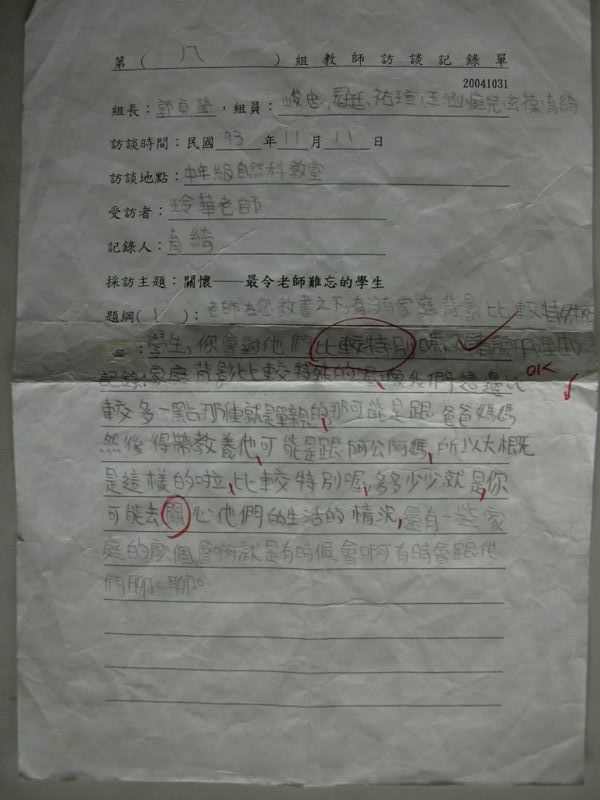 第(八)組教師訪談記錄單
20041031
組長:郭貞瑩,組員:峻忠、冠廷、祐瑄、玉涵、庭兒、玄葆、育綺
訪談時間:民國93年11月11日
訪談地點:中年級自然科教室
受訪者:玲華老師
記錄人:育綺
採訪主題:關懷——最令老師難忘的學生
題綱(1):老師在您教書之下,有沒有家庭背景比較特殊的
學生,你會對他們比較特別嗎?(請說明理由)
OK
記錄:家庭背影比較特殊的喔,像我們這邊比
較多一點那種就是單親的,那可能是跟爸爸媽媽
然後得帶教養他,可能是跟阿公阿媽,所以大概
是這樣的啦,比較特別喔,多多少少就是,你
可能去關心他們的生活的情況,還有一些家
庭的麼個,會啊就是有時候會啊有時會跟他
們聊一聊。